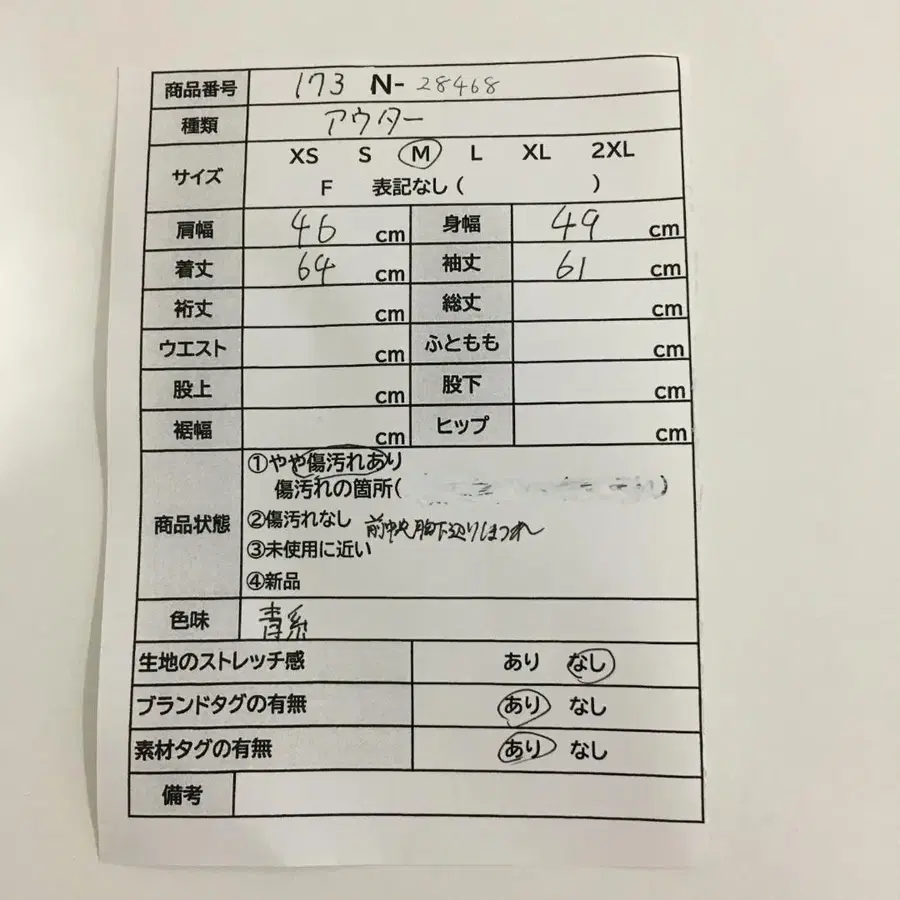 商品番号 173 N- 28468
種類 アウター
サイズ XS S M L XL 2XL
F 表記なし ( )
肩幅 46 cm 身幅 49 cm
着丈 64 cm 袖丈 61 cm
裄丈 cm 総丈 cm
ウエスト cm ふともも cm
股上 cm 股下 cm
裾幅 cm ヒップ cm
商品状態 ①やや傷汚れあり
傷汚れの箇所( )
②傷汚れなし 前中央胸下辺りほつれ
③未使用に近い
④新品
色味 青系
生地のストレッチ感 あり なし
ブランドタグの有無 あり なし
素材タグの有無 あり なし
備考